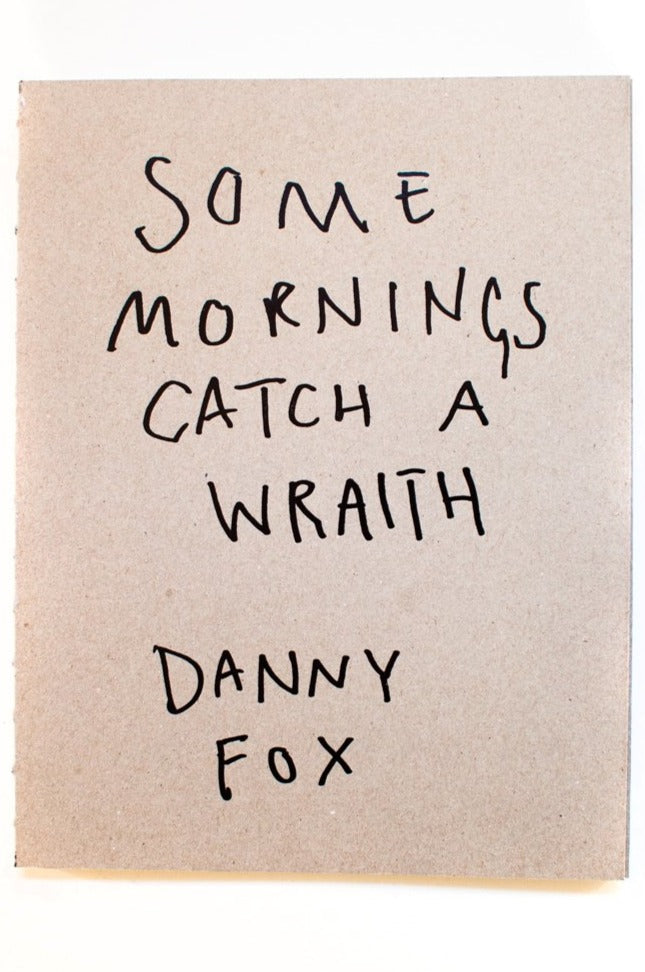 SOME
MORNINGS
CATCH A
WRAITH
DANNY
FOX